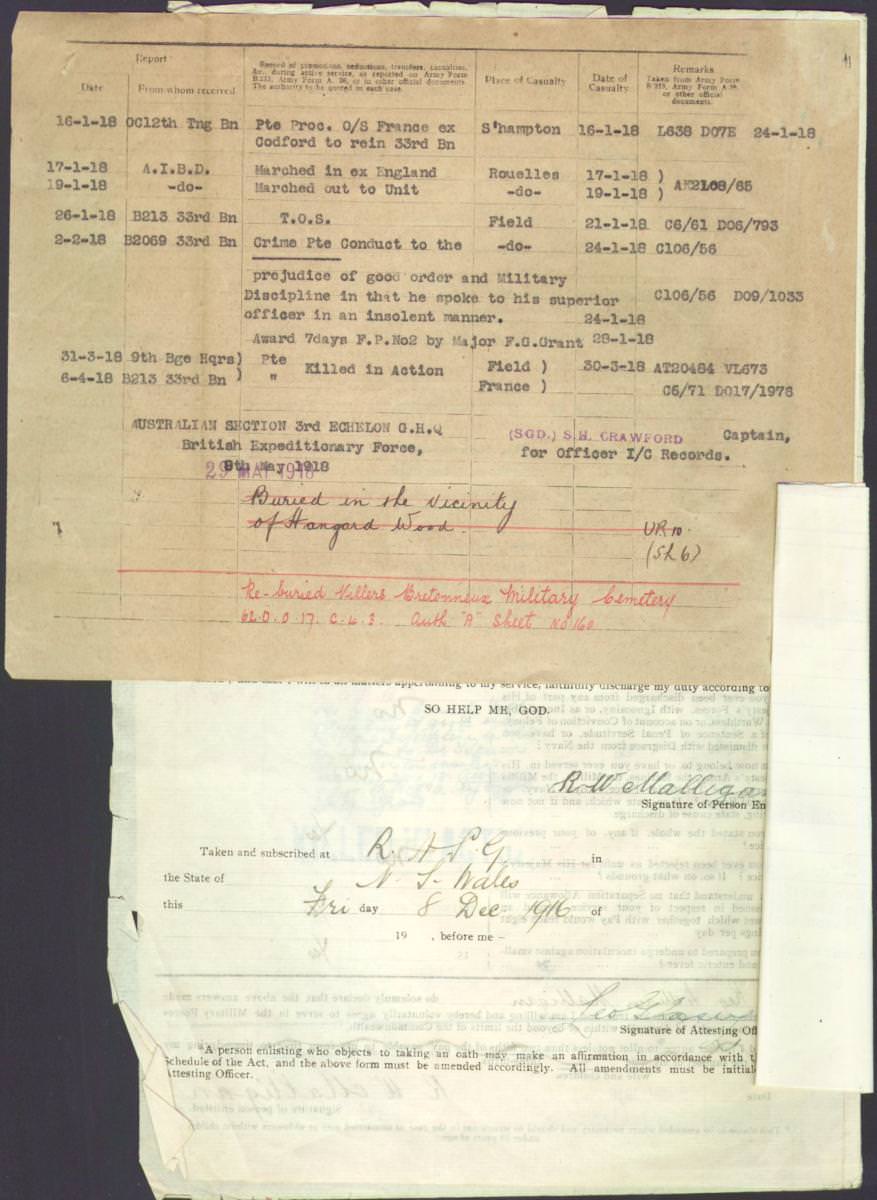 Report
Date
From whom received
Record of promotions, reductions, transfers, casualties,
&c., during active service, as reported on Army Form
B.213, Army Form A. 36, or in other official documents.
The authority to be quoted in each case.
Place of Casualty
Date of
Casualty
Remarks
Taken from Army Form
B.213, Army Form A.36,
or other official
documents.
16-1-18 OC12th Tng Bn Pte Proc. O/S France ex S'hampton 16-1-18 L638 DO7E 24-1-18
Codford to rein 33rd Bn
17-1-18 A.I.B.D. Marched in ex England Rouelles 17-1-18 )
19-1-18 -do- Marched out to Unit -do- 19-1-18 ) AE2108/65
26-1-18 B213 33rd Bn T.O.S. Field 21-1-18 C6/61 DO6/793
2-2-18 B2069 33rd Bn Crime Pte Conduct to the -do- 24-1-18 C106/56
prejudice of good order and Military
Discipline in that he spoke to his superior C106/56 DO9/1033
officer in an insolent manner. 24-1-18
Award 7days F.P.No2 by Major F.G.Grant 28-1-18
31-3-18 9th Bge Hqrs) Pte Killed in Action Field ) 30-3-18 AT20484 VL673
6-4-18 B213 33rd Bn ) " France ) C6/71 DO17/1976
AUSTRALIAN SECTION 3rd ECHELON G.H.Q
British Expeditionary Force,
8th May 1918
29 MAY 1918
(SGD.) S.H. CRAWFORD Captain,
for Officer I/C Records.
Buried in the vicinity
of Hangard Wood.
UR 10.
(Sh 6)
Re-buried Villers Bretonneux Military Cemetery
62.D.O.17. C.4.3. Auth "A" Sheet No 160
matters appertaining to my service, faithfully discharge my duty according to
SO HELP ME, GOD.
R W Malligan
Signature of Person En
Taken and subscribed at R. A. S. G in
the State of N. S. Wales
this Fri day 8 Dec 1916 of
19 , before me –
Signature of Attesting Off
*A person enlisting who objects to taking an oath may make an affirmation in accordance with t
Schedule of the Act, and the above form must be amended accordingly. All amendments must be initial
Attesting Officer.